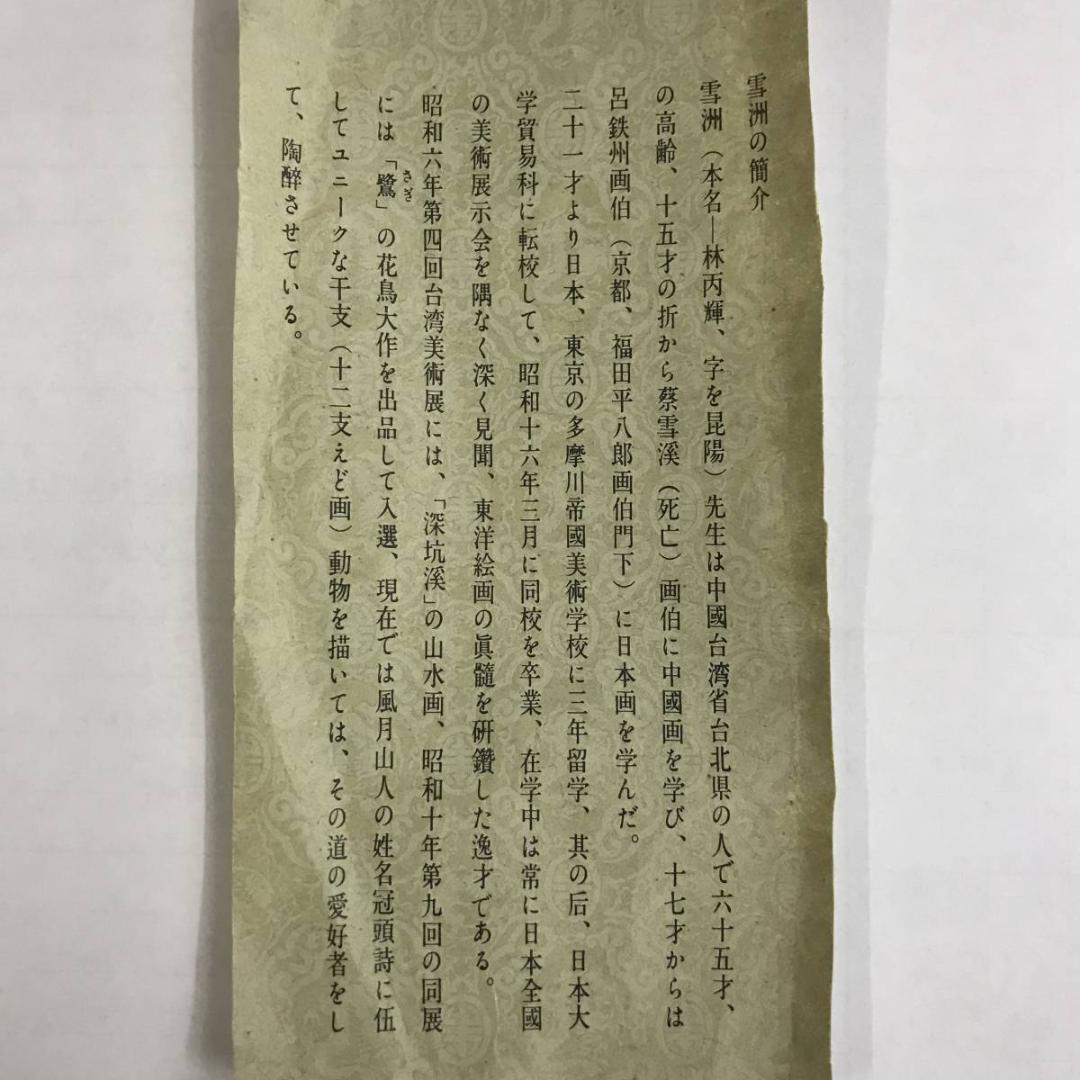 雪洲の簡介
雪洲（本名―林丙輝、字を昆陽）先生は中國台湾省台北県の人で六十五才、
の高齢、十五才の折から蔡雪溪（死亡）画伯に中國画を学び、十七才からは
呂鉄州画伯（京都、福田平八郎画伯門下）に日本画を学んだ。
二十一才より日本、東京の多摩川帝國美術学校に三年留学、其の后、日本大
学貿易科に転校して、昭和十六年三月に同校を卒業、在学中は常に日本全國
の美術展示会を隅なく深く見聞、東洋絵画の眞髓を研鑽した逸才である。
昭和六年第四回台湾美術展には、「深坑溪」の山水画、昭和十年第九回の同展
には「鷺」の花鳥大作を出品して入選、現在では風月山人の姓名冠頭詩に伍
さぎ
してユニークな干支（十二支えど画）動物を描いては、その道の愛好者をし
て、陶醉させている。